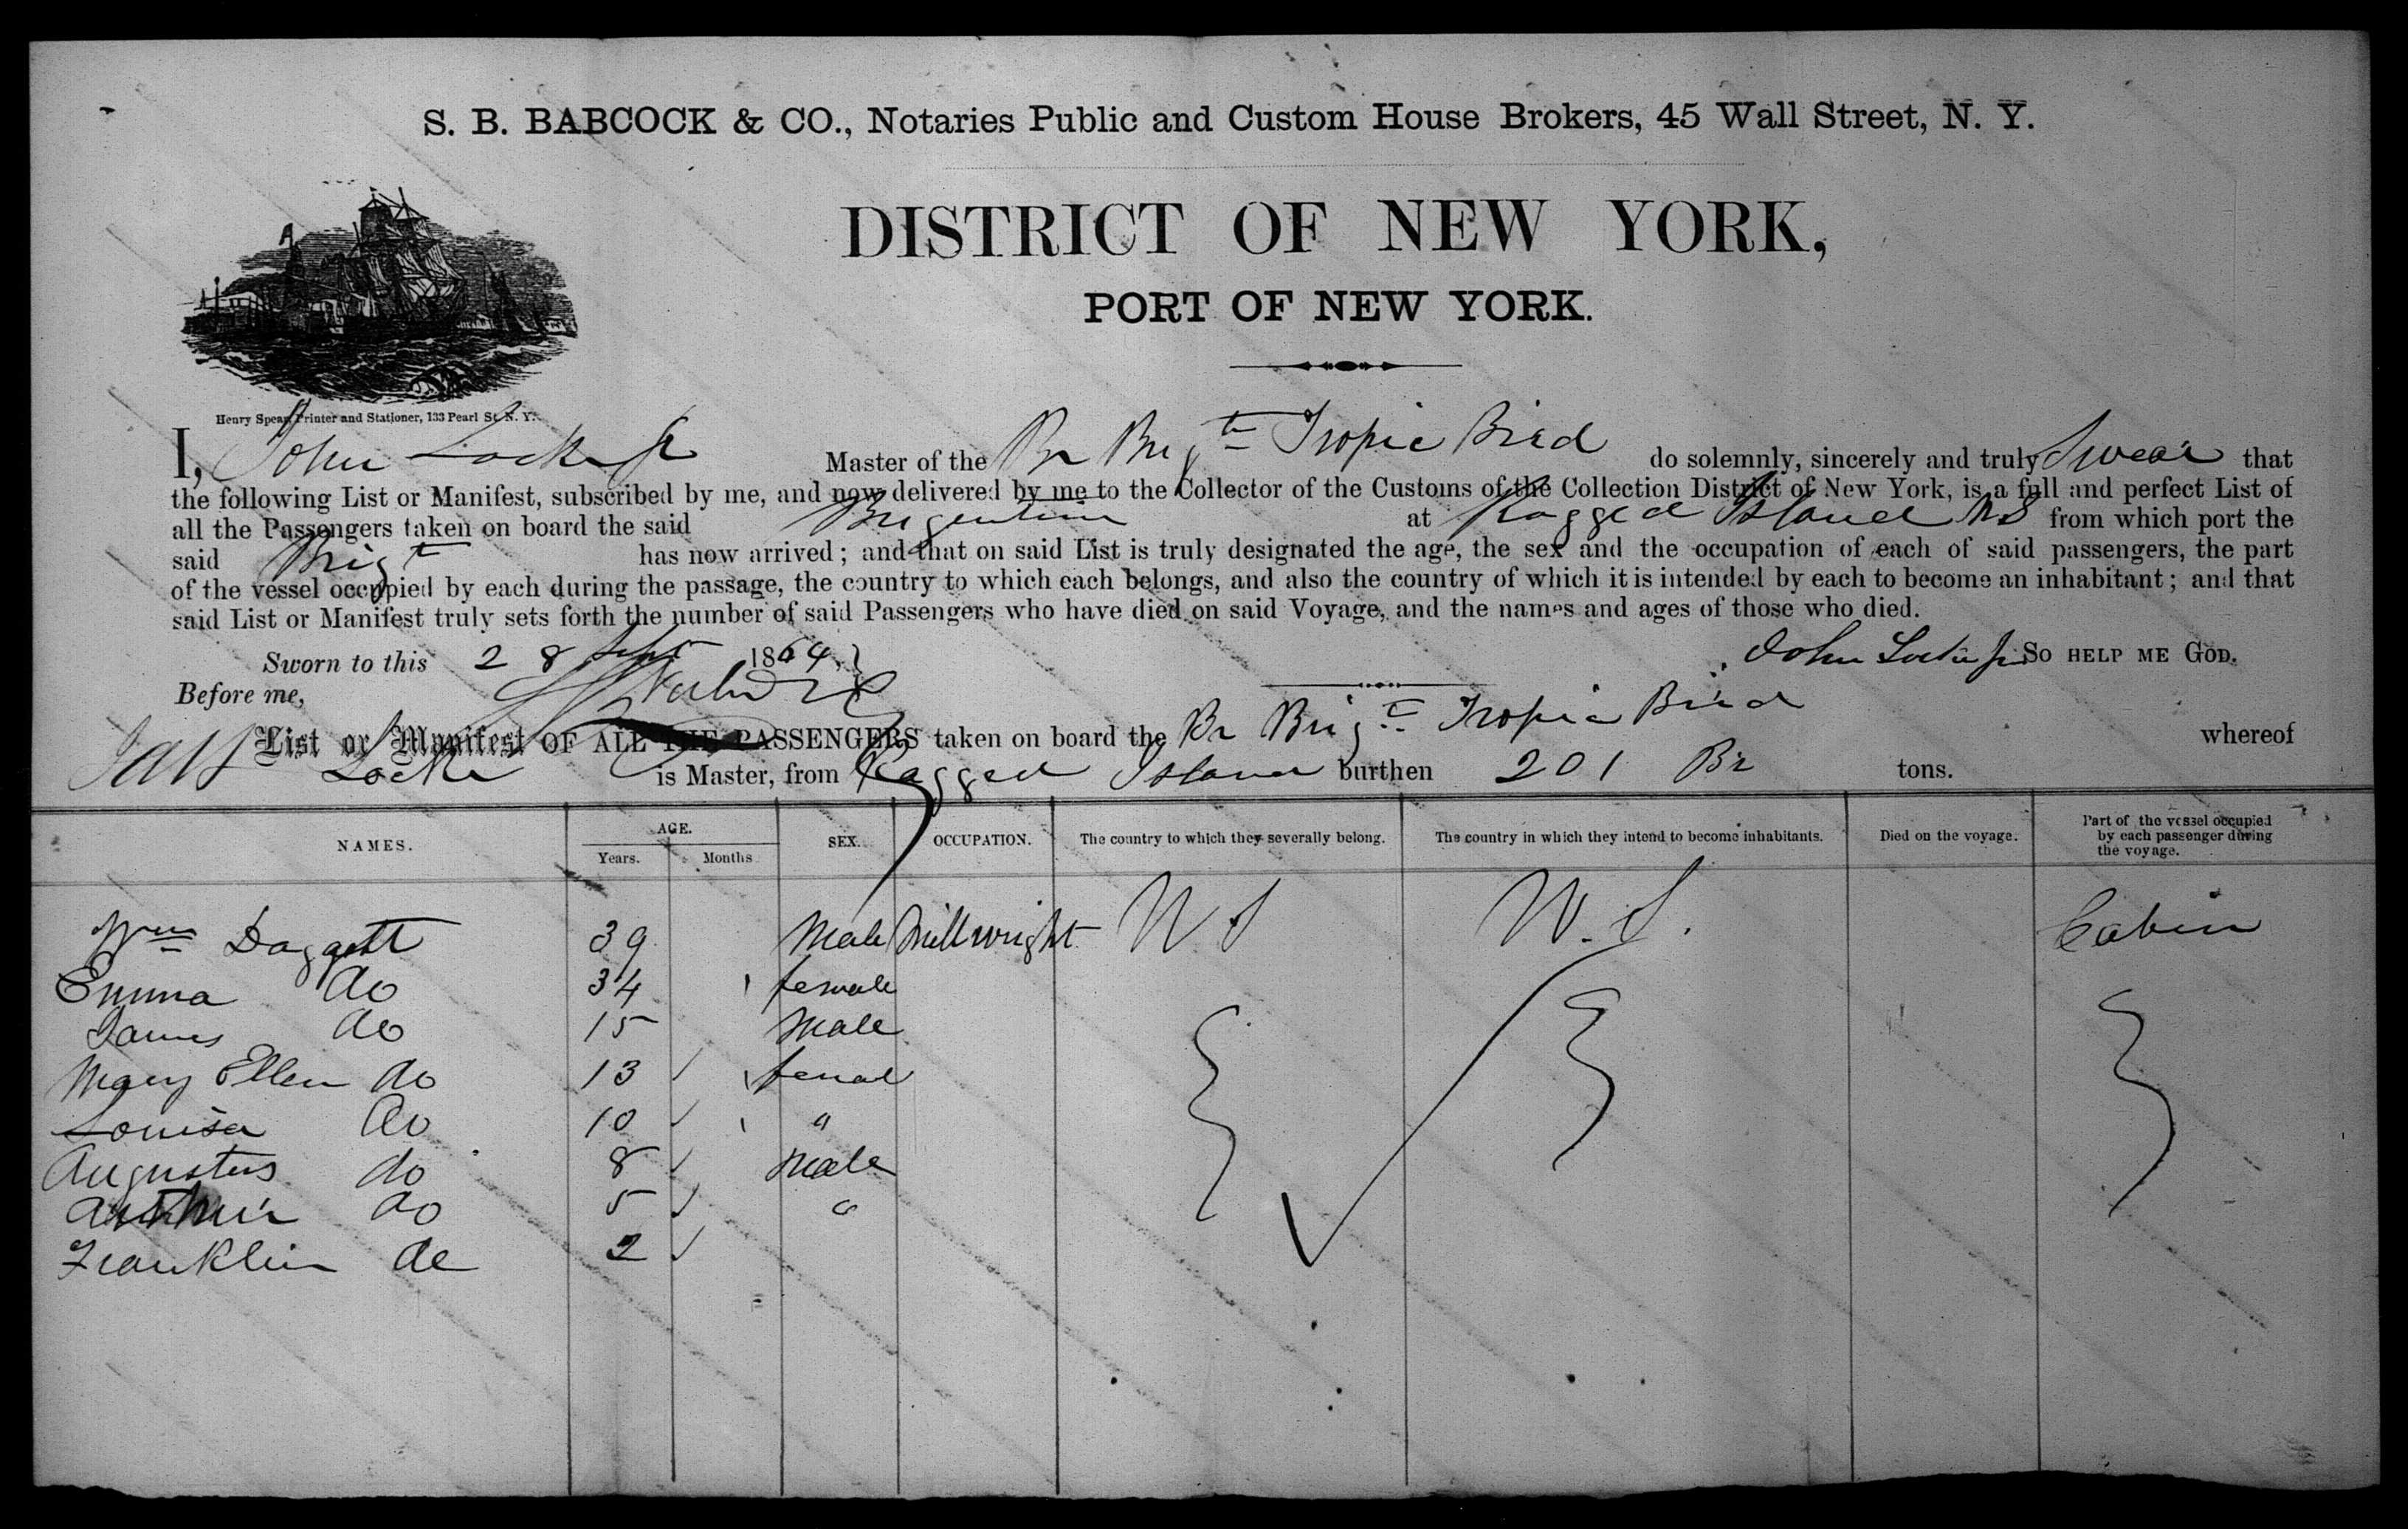 S. B. BABCOCK & CO., Notaries Public and Custom House Brokers, 45 Wall Street, N. Y.
DISTRICT OF NEW YORK,
PORT OF NEW YORK.
Henry Spear, Printer and Stationer, 133 Pearl St. N. Y.
I, John Locke Jr Master of the Br Brigt Tropic Bird do solemnly, sincerely and truly Swear that
the following List or Manifest, subscribed by me, and now delivered by me to the Collector of the Customs of the Collection District of New York, is a full and perfect List of
all the Passengers taken on board the said Brigentine at Ragged Island NS from which port the
said Brigt has now arrived; and that on said List is truly designated the age, the sex and the occupation of each of said passengers, the part
of the vessel occupied by each during the passage, the country to which each belongs, and also the country of which it is intended by each to become an inhabitant; and that
said List or Manifest truly sets forth the number of said Passengers who have died on said Voyage, and the names and ages of those who died.
Sworn to this 28 Sept 1864, John Locke Jr SO HELP ME GOD.
Before me,
List or Manifest OF ALL THE PASSENGERS taken on board the Br Brigt Tropic Bird whereof
Locke is Master, from Ragged Island burthen 201 Br tons.
NAMES. AGE. Years. Months SEX. OCCUPATION. The country to which they severally belong. The country in which they intend to become inhabitants. Died on the voyage. Part of the vessel occupied by each passenger during the voyage.
Wm Daggett 39 Male Millwright N S Cabin
Emma do 34 female
James do 15 Male
Mary Ellen do 13 femal
Louisa do 10 "
Augustus do 8 Male
Arthur do 5 "
Franklin do 2